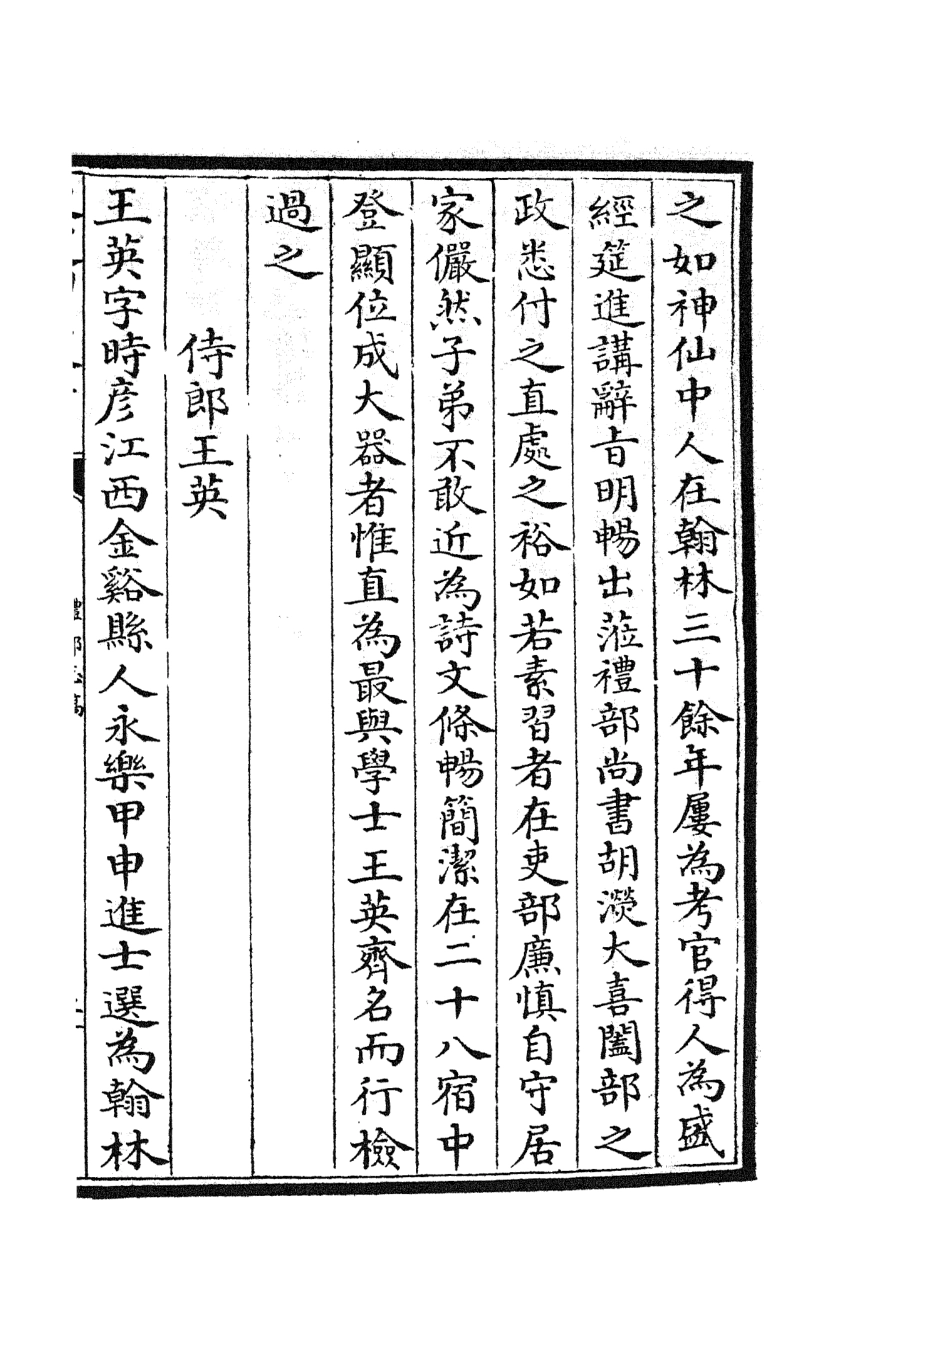 之如神仙中人在翰林三十餘年屢為考官得人為盛
經筵進講辭㫖明暢出蒞禮部尚書胡濙大喜闔部之
政悉付之直處之裕如若素習者在吏部廉慎自守居
家儼然子弟不敢近為詩文條暢簡潔在二十八宿中
登顯位成大器者惟直為最與學士王英齊名而行檢
過之
侍郎王英
王英字時彦江西金谿縣人永樂甲申進士選為翰林